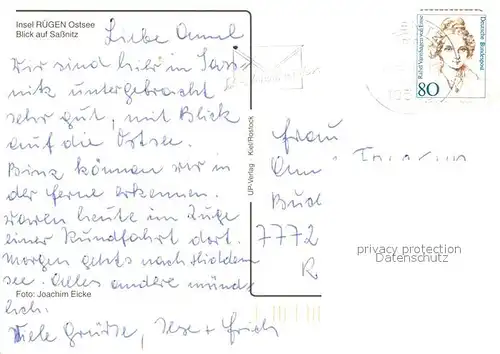 Insel RÜGEN Ostsee
Blick auf Saßnitz
Liebe Annel
Wir sind hier in Sass-
nitz untergebracht
sehr gut, mit Blick
auf die Ostsee.
Binz können wir in
der Ferne erkennen.
waren heute im Zuge
einer Rundfahrt dort.
Morgen gehts nach Hidden
see. Alles andere münd-
lich.
Viele Grüße, Ilse + Erich
Foto: Joachim Eicke
UP-Verlag Kiel/Rostock
Frau
7772
R
Deutsche Bundespost
Rahel Varnhagen von Ense
80
privacy protection
Datenschutz